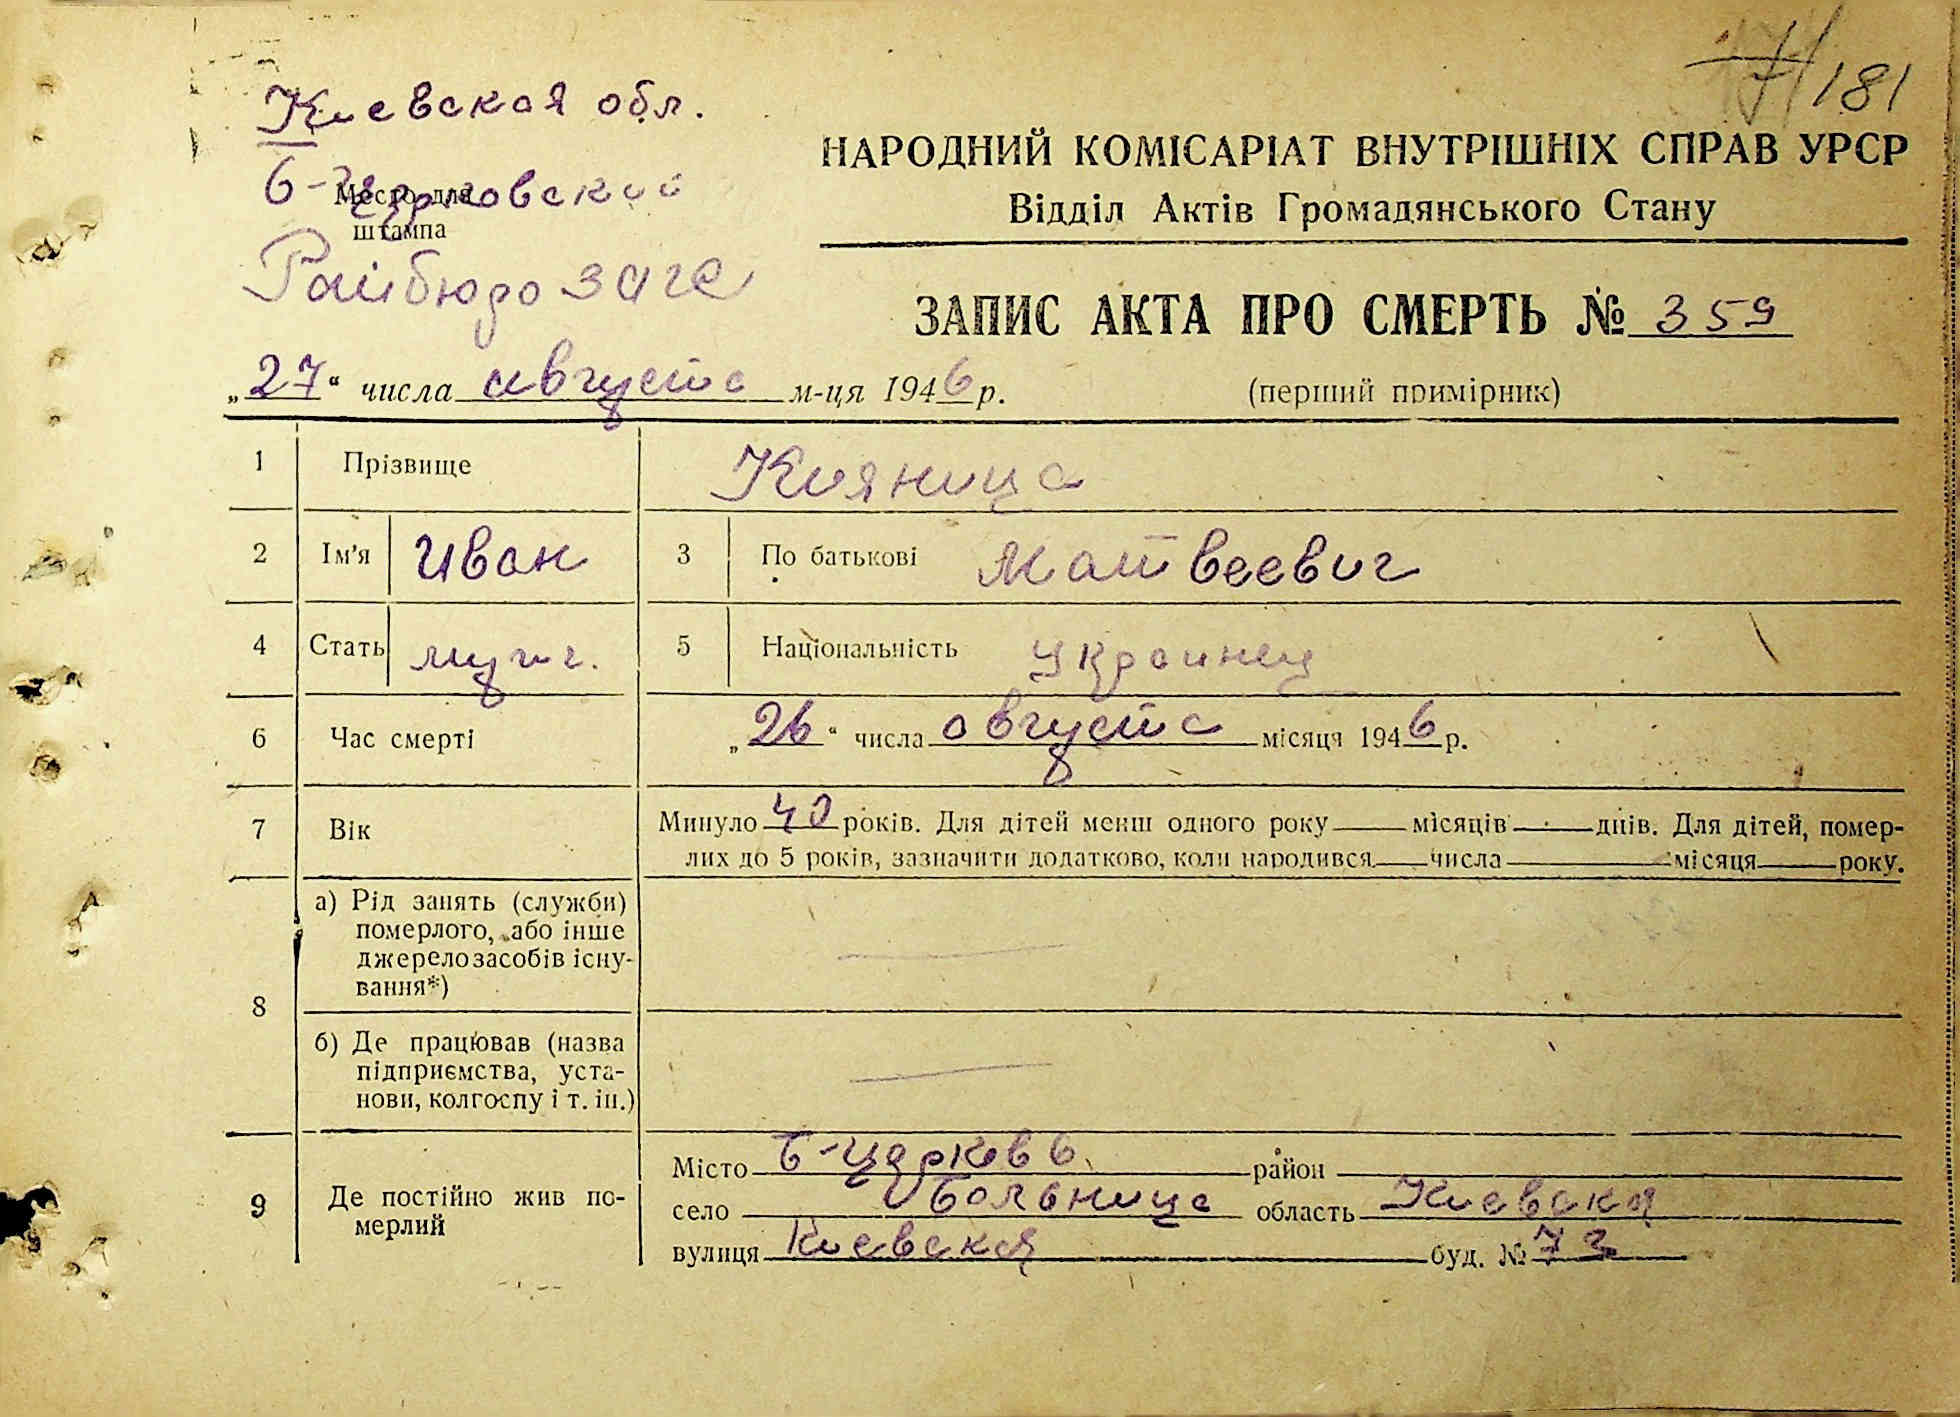 181
Киевская обл.
Б-Церковский
Место для
штампа
Райбюро загс
НАРОДНИЙ КОМІСАРІАТ ВНУТРІШНІХ СПРАВ УРСР
Відділ Актів Громадянського Стану
ЗАПИС АКТА ПРО СМЕРТЬ № 359
„27“ числа августа м-ця 1946 р.
(перший примірник)
1 Прізвище Кияница
2 Ім'я Иван 3 По батькові Матвеевич
4 Стать 5 Національність украинец
6 Час смерті „26“ числа августа місяця 1946 р.
7 Вік Минуло 40 років. Для дітей менш одного року місяців днів. Для дітей, помер-
лих до 5 років, зазначити додатково, коли народився числа місяця року.
8 а) Рід занять (служби)
померлого, або інше
джерело засобів існу-
вання*)
б) Де працював (назва
підприємства, уста-
нови, колгоспу і т. ін.)
9 Де постійно жив по-
мерлий
Місто Б-Церковь район
село больница область Киевская
вулиця Киевская буд. № 73